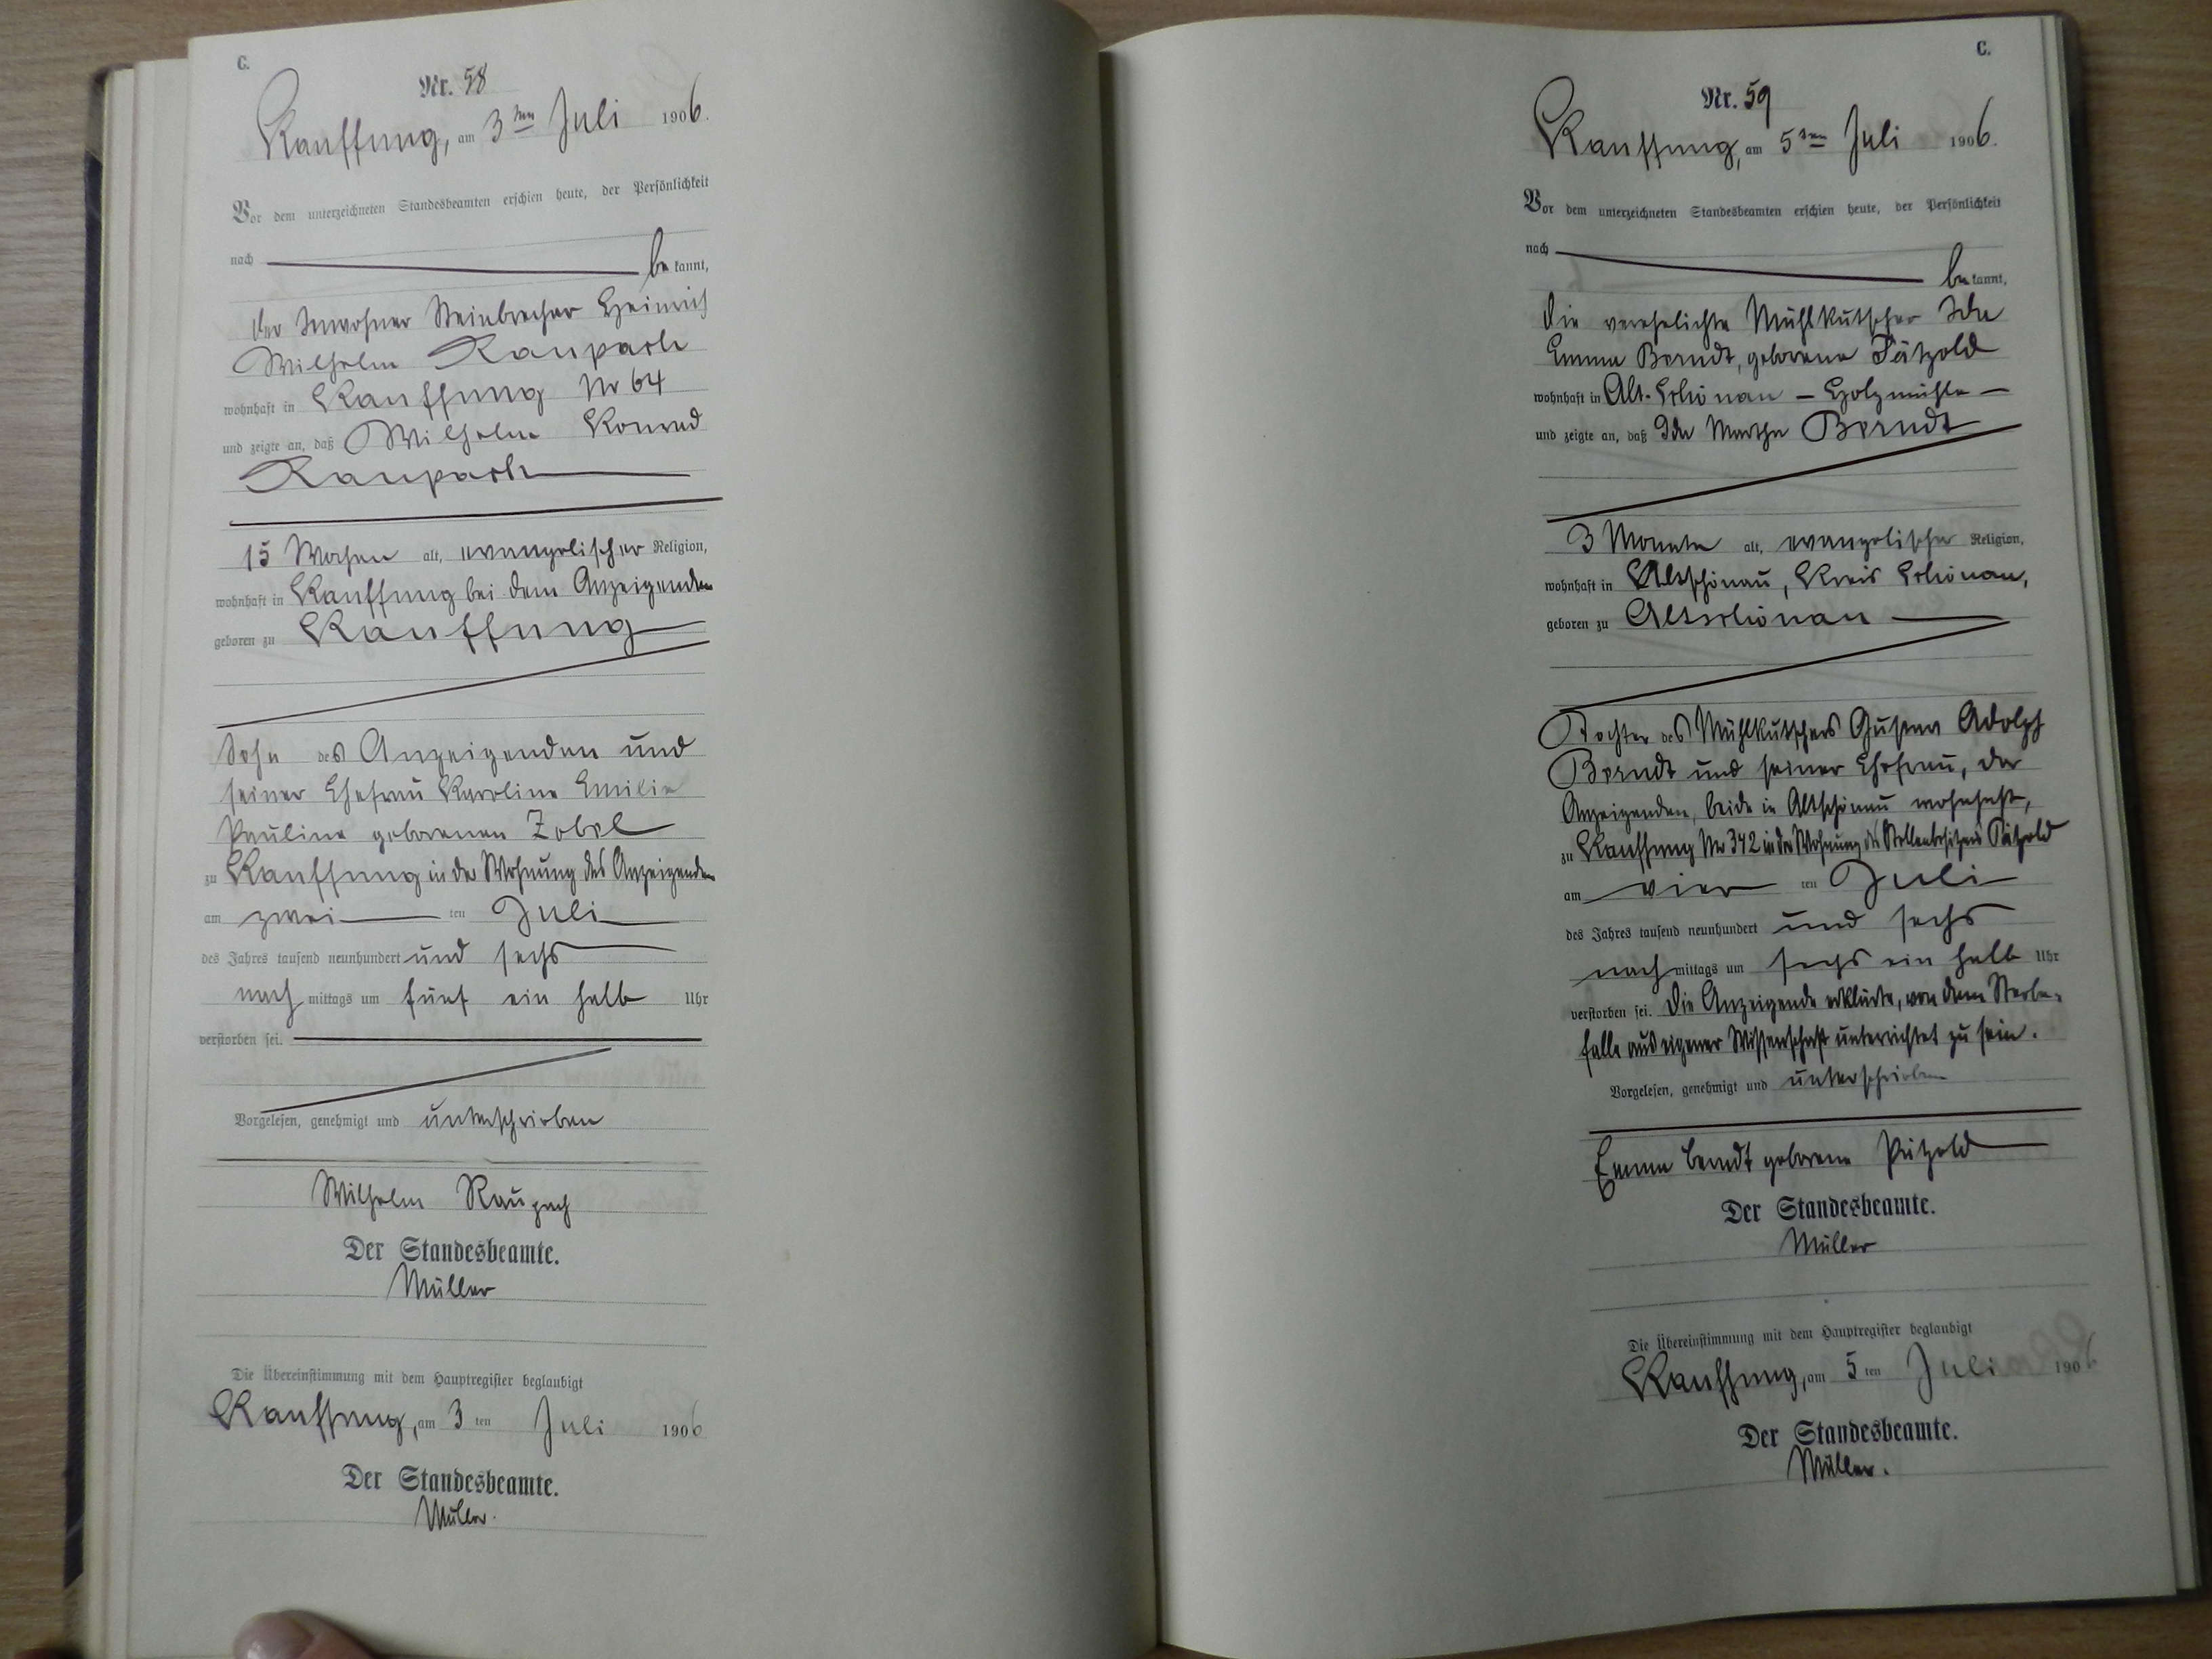 C.
Nr. 58
Kauffung, am 3ten Juli 1906.
Vor dem unterzeichneten Standesbeamten erschien heute, der Persönlichkeit
nach bekannt,
der Inwohner Steinbrecher Heinrich
Wilhelm Raupach
wohnhaft in Kauffung Nr 64
und zeigte an, daß Wilhelm Konrad
Raupach
15 Wochen alt, evangelischer Religion,
wohnhaft in Kauffung bei dem Anzeigenden
geboren zu Kauffung
Sohn des Anzeigenden und
seiner Ehefrau Karoline Emilie
Pauline geborenen Zobel
zu Kauffung in der Wohnung des Anzeigenden
am zweiten Juli
des Jahres tausend neunhundert und sechs
nachmittags um fünf ein halb Uhr
verstorben sei.
Vorgelesen, genehmigt und unterschrieben
Wilhelm Raupach
Der Standesbeamte.
Müller
Die Übereinstimmung mit dem Hauptregister beglaubigt
Kauffung, am 3ten Juli 1906
Der Standesbeamte.
Müller.
C.
Nr. 59
Kauffung, am 5ten Juli 1906.
Vor dem unterzeichneten Standesbeamten erschien heute, der Persönlichkeit
nach bekannt,
die verehelichte Mühlkutscher Ida
Emma Berndt, geborene Pätzold
wohnhaft in Alt-Schönau – Holzmühle –
und zeigte an, daß Ida Martha Berndt
3 Monate alt, evangelischer Religion,
wohnhaft in Altschönau, Kreis Schönau,
geboren zu Altschönau
Tochter des Mühlkutschers Gustav Adolph
Berndt und seiner Ehefrau, der
Anzeigenden, beide in Altschönau wohnhaft,
zu Kauffung Nr 342 in der Wohnung des Stellenbesitzers Pätzold
am vierten Juli
des Jahres tausend neunhundert und sechs
nachmittags um sechs ein halb Uhr
verstorben sei. Die Anzeigende erklärte, von dem Sterbe-
falle aus eigener Wissenschaft unterrichtet zu sein.
Vorgelesen, genehmigt und unterschrieben
Emma Berndt geborene Pätzold
Der Standesbeamte.
Müller
Die Übereinstimmung mit dem Hauptregister beglaubigt
Kauffung, am 5ten Juli 1906
Der Standesbeamte.
Müller.